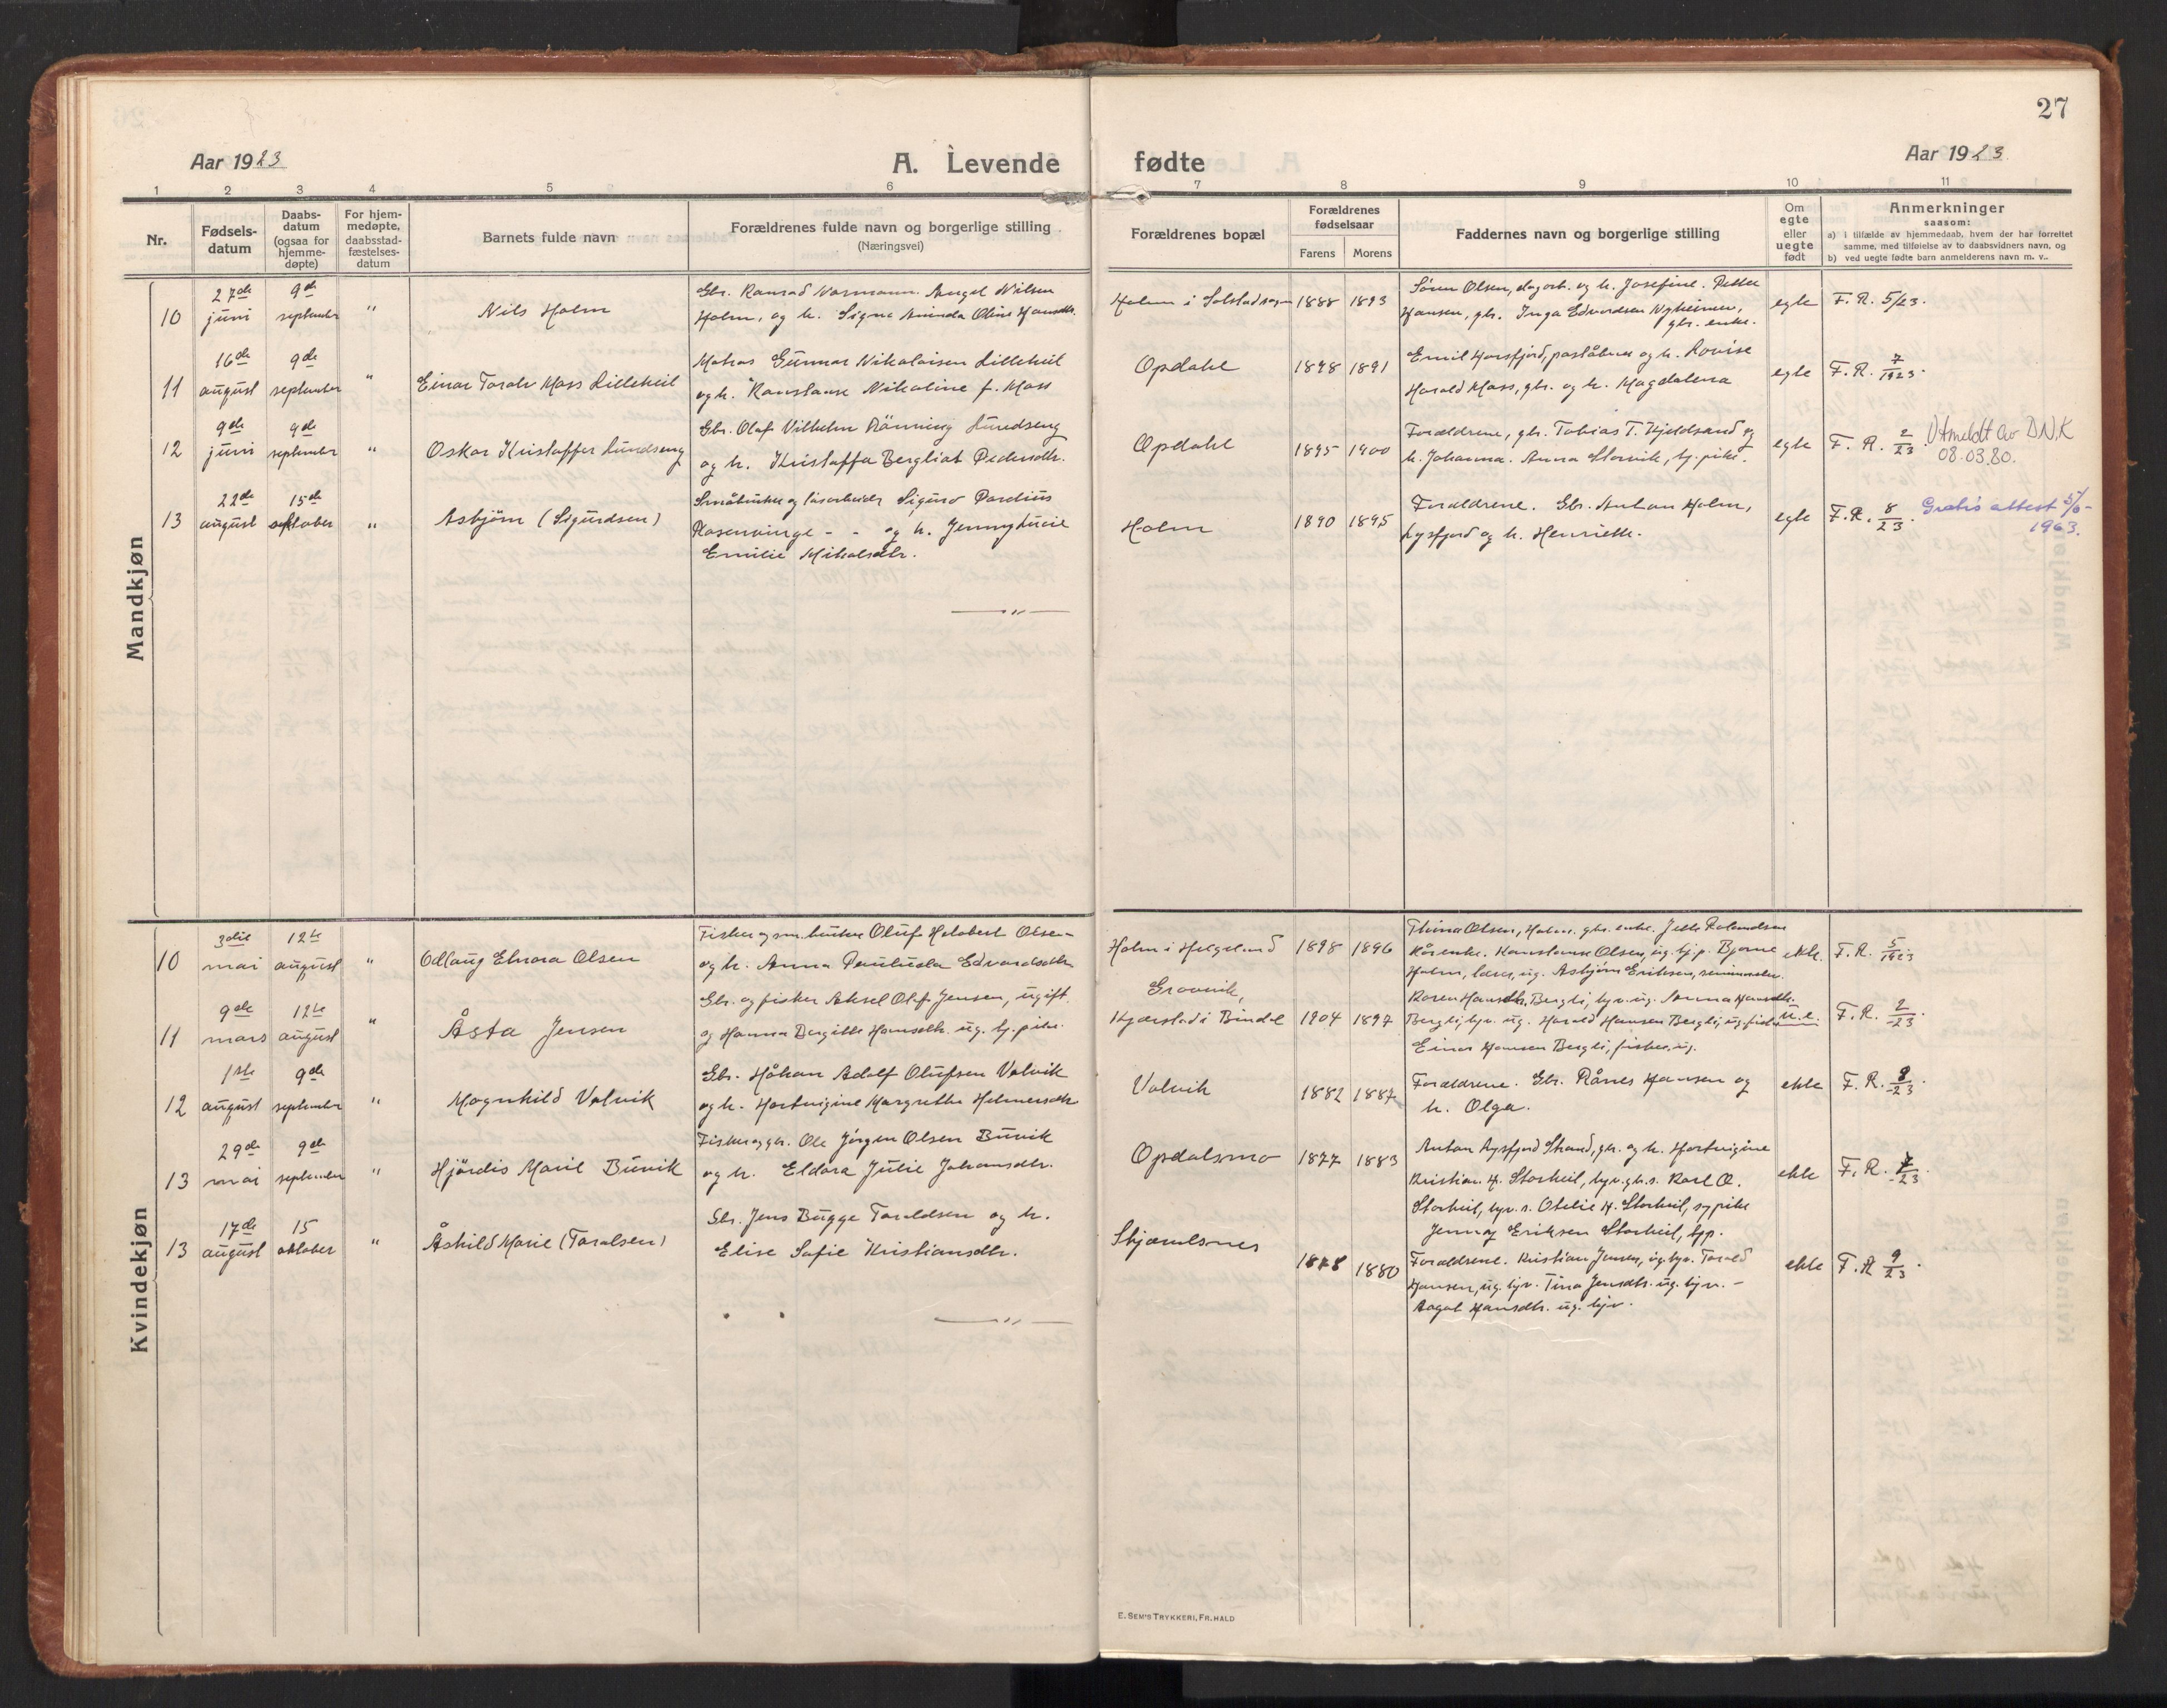 27
Aar 1923
A. Levende fødte
Aar 1923.
1 2 3 4 5 6 7 8 9 10 11
Nr.
Fødsels-
datum
Daabs-
datum
(ogsaa for
hjemme-
døpte)
For hjem-
medøpte,
daabsstad-
fæstelses-
datum
Barnets fulde navn
Forældrenes fulde navn og borgerlige stilling
(Næringsvei)
Forældrenes bopæl
Forældrenes
fødselsaar
Farens Morens
Faddernes navn og borgerlige stilling
Om
egte
eller
uegte
født
Anmerkninger
saasom:
a) i tilfælde av hjemmedaab, hvem der har forrettet
samme, med tilføielse av to daabsvidners navn, og
b) ved uegte fødte barn anmelderens navn m. v..
Mandkjøn
10
27de
juni
9de
september
"
Nils Holm
Gbr. Konrad Normann Angel Nilsen
Holm, og h. Signe Aminda Oline Hansdtr.
Holm i Solstadsogn
1888 1893
Søren Olsen, dagarb. og h. Josefine. Petter
Hansen, gbr. Inga Edvardsen Nyheimen,
gbr. enke.
egte
F. R. 5/23.
11
16de
august
9de
september
"
Einar Toralv Moss Lilleheil
Matros Gunnar Nikolaisen Lilleheil
og h. Konstanse Nikoline f. Moss
Opdahl
1898 1891
Emil Horsfjord, poståbner og h. Lovise
Harald Moss, gbr. og h. Magdalena
egte
F. R. 7/1923.
12
9de
juni
9de
september
"
Oskar Kristoffer Lundseng
Gbr. Olaf Vilhelm Rönning Lundseng
og h. Kristoffa Bergliot Pedersdtr.
Opdahl
1895 1900
Forældrene, gbr. Tobias T. Kjeldsand og
h. Johanna. Anna Storvik, tj. pike.
egte
F. R. 2/23.
Utmeldt av DNK
08.03.80.
13
22de
august
15de
oktober
"
Asbjörn (Sigurdsen)
Småbruker og løsarbeider Sigurd Pardius
Rosenvinge - - og h. Jenny Lucie
Emilie Mikalsdtr.
Holm
1890 1895
Forældrene. Gbr. Anton Holm,
Lysfjord og h. Henriette.
egte
F. R. 8/23.
Gratis attest 5/6-
1963.
Kvindekjøn
10
3die
mai
12te
august
"
Odlaug Elnora Olsen
Fisker og sm. bruker Oluf Hilobert Olsen
og h. Anna Paulucla Edvardsdtr.
Holm i Helgeland
1898 1896
Thina Olsen, Holm, gbr. enke. Jelle Rolandsen
Kårenke. Konstanse Olsen, ug. tj. p. Bjarne
Holm, lærer, ug. Asbjörn Eriksen, seminarelev.
ekte.
F. R. 5/1923
11
9de
mars
12te
august
"
Åsta Jensen
Gbr. og fisker Aksel Olaf Jensen, ugift.
og Hanna Bergitte Hansdtr. ug. tj. pike.
Groovik,
Kjærstad i Bindal
1904 1897
Karen Hansdtr. Bergli, tyv. ug. Sanna Hansdtr.
Bergli, tyv. ug. Harald Hansen Bergli, ug. fisker
Einar Hansen Bergli, fisker, ug.
u.e.
F. R. 2/23.
12
1ste
august
9de
september
"
Magnhild Valvik
Gbr. Håkon Adolf Olufsen Valvik
og h. Hartvigine Margrethe Helmersdtr.
Valvik
1882 1887
Forældrene. Gbr. Rånes Hansen og
h. Olga.
ekte
F. R. 8/23.
13
29de
mai
9de
september
"
Hjördis Marie Buvik
Fisker og gbr. Ole Jörgen Olsen Buvik
og h. Eldora Julie Johansdtr.
Opdalsmo
1877 1883
Anton Aysfjord Strand, gbr. og h. Hartvigine
Kristian H. Storheil, tyv. gb. s. Karl O.
Storheil, tyv. s. Otelie H. Storheil, sypike
Jenny Eriksen Storheil, tpp.
ekte
F. R. 7/23.
13
17de
august
15
oktober
"
Åshild Marie (Toralsen)
Gbr. Jens Bugge Toraldsen og h.
Elise Sofie Kristiansdtr.
Skjærelsnes
1878 1880
Forældrene. Kristian Jensen, ug. tyv. Torald
Hansen, ug. tyv. Tina Jensdtr. ug. tjv. -
Aagot Hansdtr. ug. tjv.
ekte
F. R. 9/23.
E. SEM'S TRYKKERI, FR. HALD